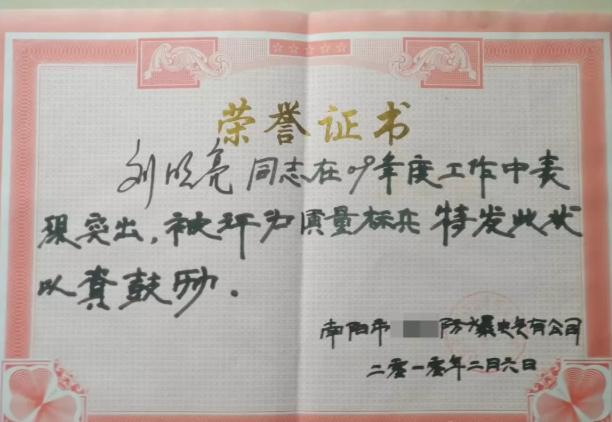 荣誉证书
刘明亮 同志在09年度工作中表
现突出,被评为质量标兵 特发此状
以资鼓励.
南阳市 防爆电气有公司
二零一零年二月六日